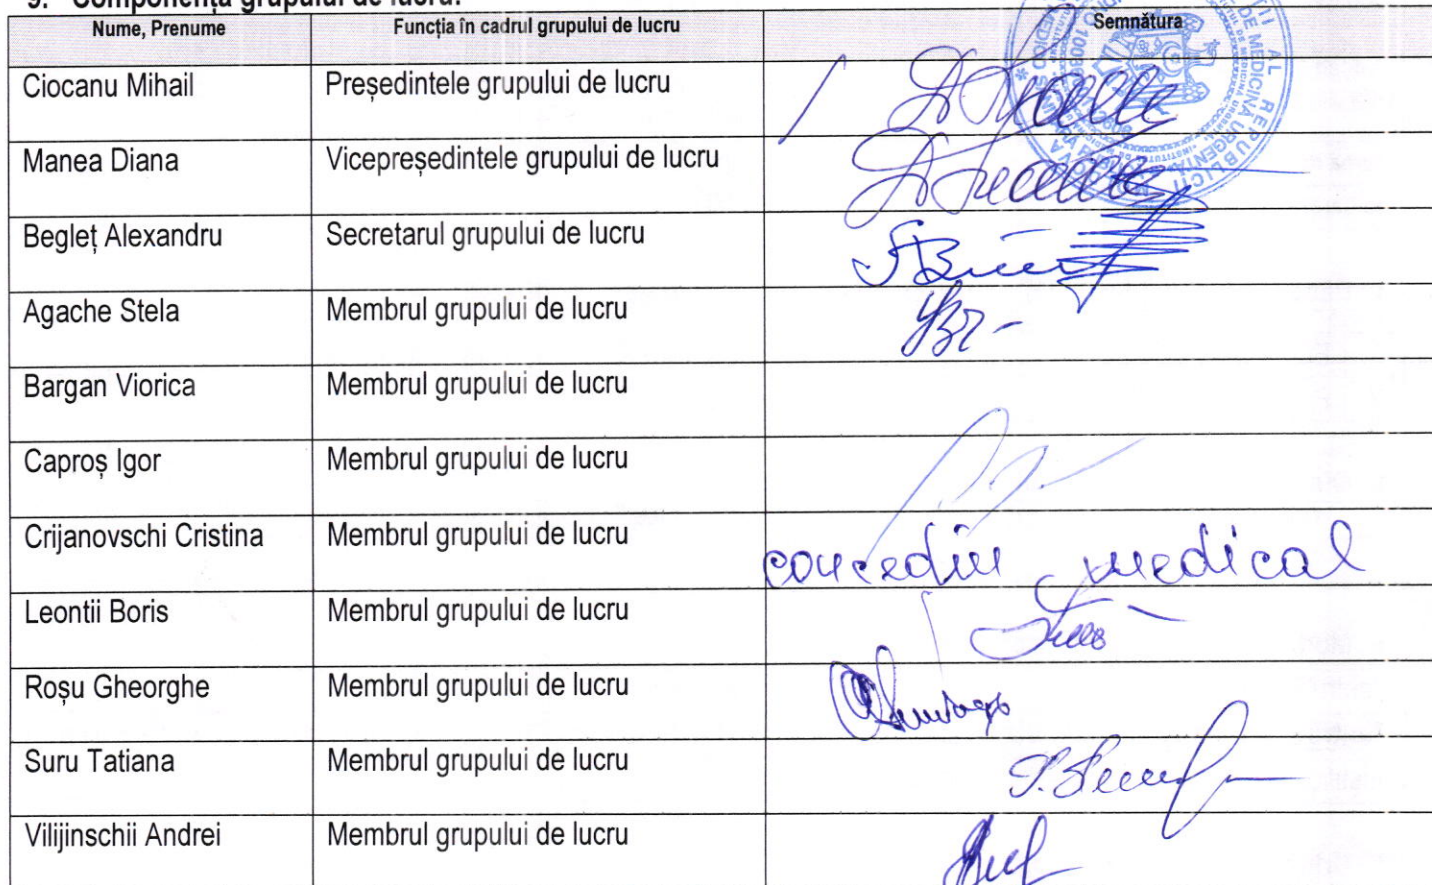 9. Componența grupului de lucru:
Nume, Prenume Funcția în cadrul grupului de lucru Semnătura
Ciocanu Mihail Președintele grupului de lucru
Manea Diana Vicepreședintele grupului de lucru
Begleț Alexandru Secretarul grupului de lucru
Agache Stela Membrul grupului de lucru
Bargan Viorica Membrul grupului de lucru
Caproș Igor Membrul grupului de lucru
Crijanovschi Cristina Membrul grupului de lucru concediu medical
Leontii Boris Membrul grupului de lucru
Roșu Gheorghe Membrul grupului de lucru
Suru Tatiana Membrul grupului de lucru
Vilijinschii Andrei Membrul grupului de lucru